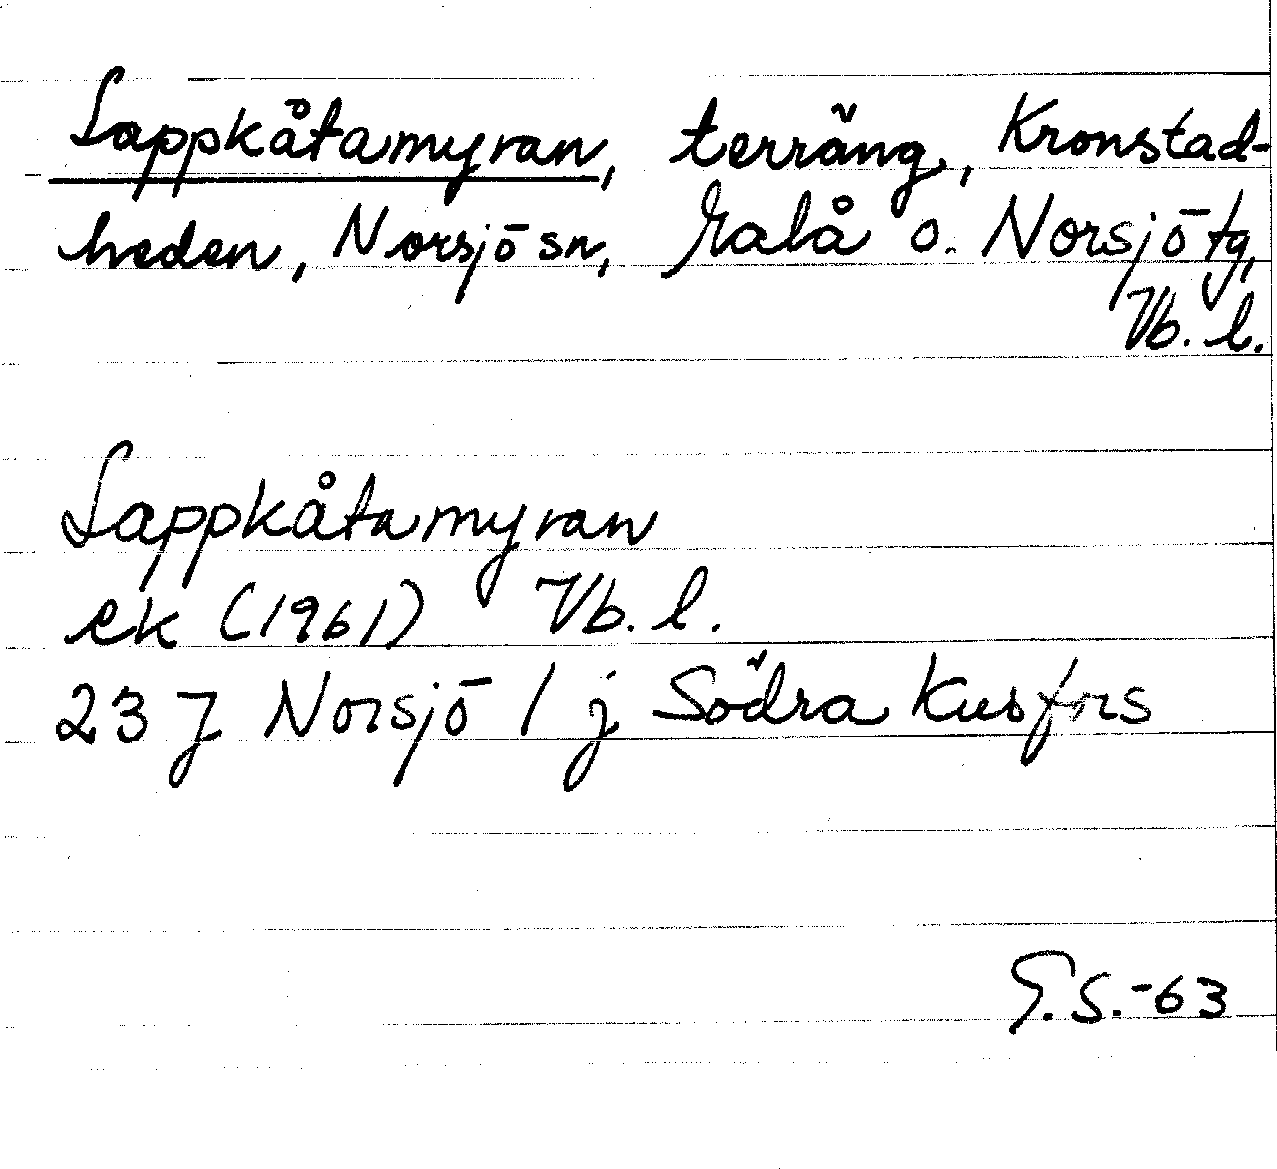 Lappkåtamyran, terräng, Kronstad-
heden, Norsjö sn, Malå o. Norsjö tg,
Vb. l.
Lappkåtamyran
ek (1961) Vb. l.
23 J Norsjö / j Södra Kusfors
G.S.-63